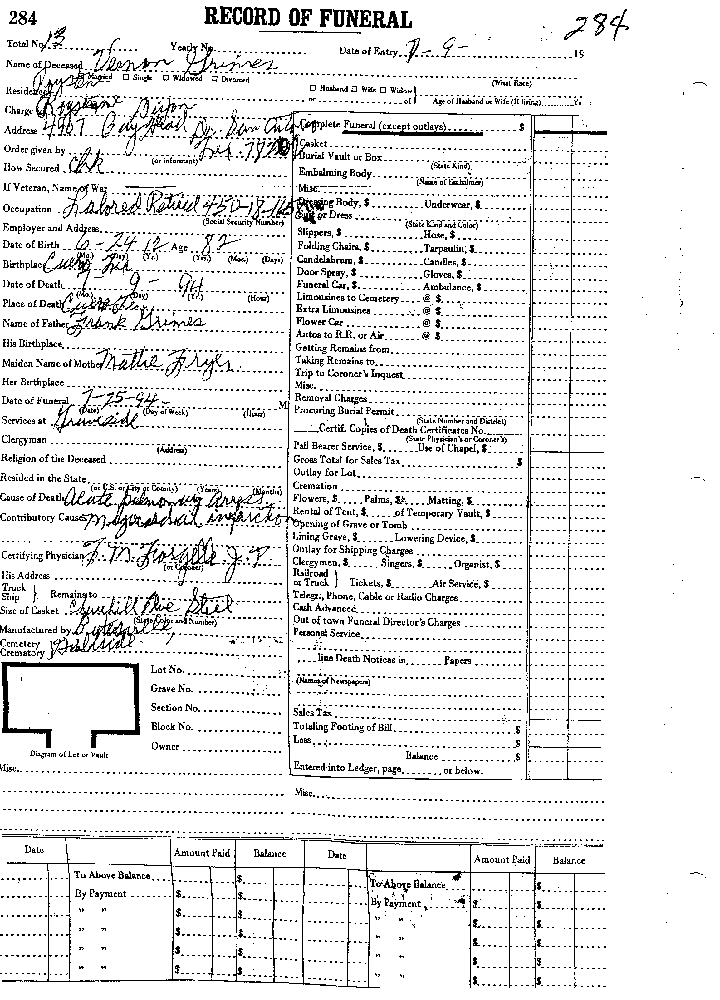 284 RECORD OF FUNERAL 284
Total No. 13 Yearly No. Date of Entry 7-9- 19
Name of Deceased Vernon Grimes
Married Single Widowed Divorced
Residence
Husband Wife Widow (What Race)
or of Age of Husband or Wife (If living) Yrs.
Charge Dixon
Address 4967 Dr. San
Order given by (or informant)
How Secured
If Veteran, Name of War
Occupation Labored Retired 450-18-
(Social Security Number)
Employer and Address
Date of Birth 6-24-12 Age 82
(Mo.) (Day) (Yr.) (Yrs.) (Mos.) (Days)
Birthplace Cuero, Tex
Date of Death 7-9-94
(Mo.) (Day) (Yr.) (Hour)
Place of Death Cuero Tex
Name of Father Frank Grimes
His Birthplace
Maiden Name of Mother Mattie
Her Birthplace
Date of Funeral 7-25-94 M
(Date) (Day of Week) (Hour)
Services at Graveside
Clergyman
(Address)
Religion of the Deceased
Resided in the State
(or U.S. or City or County) (Years) (Months)
Cause of Death Acute pulmonary
Contributory Cause
Certifying Physician J. P.
(or Coroner)
His Address
Truck Ship } Remains to
Size of Casket Blue Steel
(State Color and Number)
Manufactured by
Cemetery Crematory Hillside
Lot No.
Grave No.
Section No.
Block No.
Owner
Diagram of Lot or Vault
Complete Funeral (except outlays) $
Casket
Burial Vault or Box
(State Kind)
Embalming Body
(Name of Embalmer)
Misc.
Dressing Body, $ Underwear, $
Suit or Dress
(State Kind and Color)
Slippers, $ Hose, $
Folding Chairs, $ Tarpaulin, $
Candelabrum, $ Candles, $
Door Spray, $ Gloves, $
Funeral Car, $ Ambulance, $
Limousines to Cemetery @ $
Extra Limousines @ $
Flower Car @ $
Autos to R.R. or Air @ $
Getting Remains from
Taking Remains to
Trip to Coroner's Inquest
Misc.
Removal Charges
Procuring Burial Permit
(State Number and District)
Certif. Copies of Death Certificates No.
(State Physician's or Coroner's)
Pall Bearer Service, $ Use of Chapel, $
Gross Total for Sales Tax $
Outlay for Lot
Cremation
Flowers, $ Palms, $ Matting, $
Rental of Tent, $ of Temporary Vault, $
Opening of Grave or Tomb
Lining Grave, $ Lowering Device, $
Outlay for Shipping Charges
Clergymen, $ Singers, $ Organist, $
Railroad or Truck } Tickets, $ Air Service, $
Telegr., Phone, Cable or Radio Charges
Cash Advanced
Out of town Funeral Director's Charges
Personal Service
line Death Notices in Papers
(Names of Newspapers)
Sales Tax
Totaling Footing of Bill $
Less $
Balance $
Entered into Ledger, page or below.
Misc. Misc.
Date Amount Paid Balance Date Amount Paid Balance
To Above Balance $ To Above Balance $
By Payment $ $ By Payment $ $
" " $ $ " " $ $
" " $ $ " " $ $
" " $ $ " " $ $
" " $ $ " " $ $